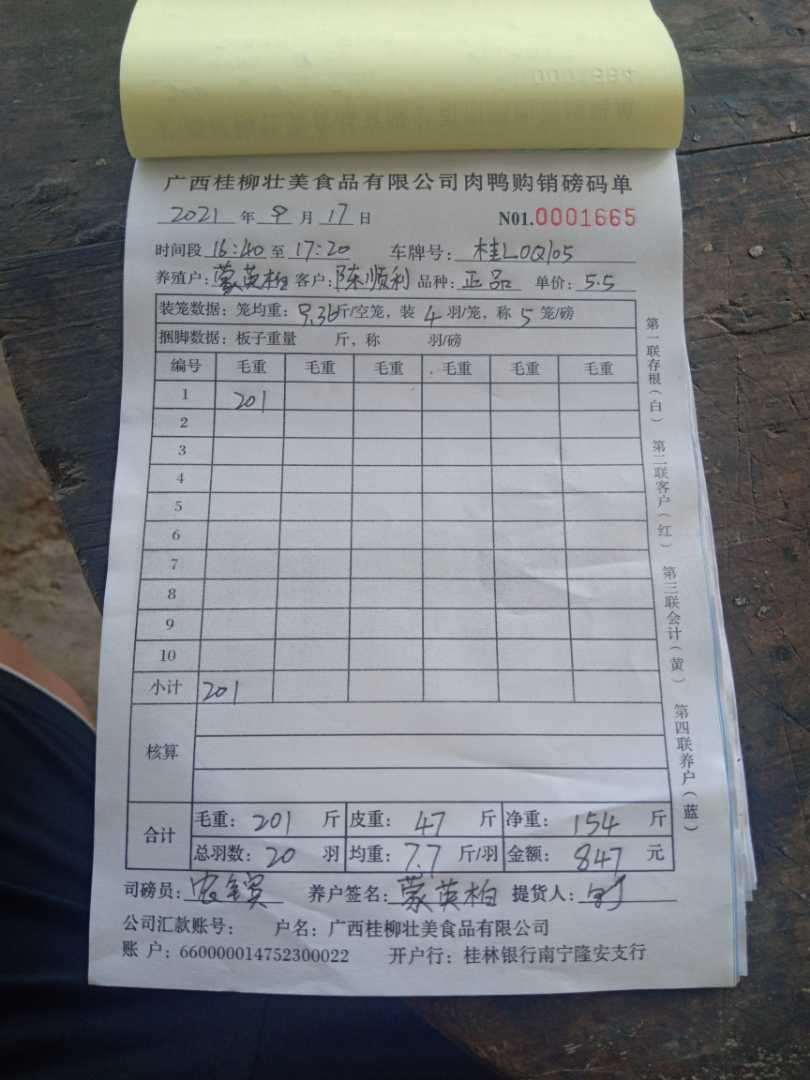 广西桂柳壮美食品有限公司肉鸭购销磅码单
2021 年 9 月 17 日 N01.0001665
时间段 16:40 至 17:20 车牌号: 桂L0Q105
养殖户: 蒙英柏 客户: 陈顺利 品种: 正品 单价: 5.5
装笼数据: 笼均重: 9.36斤/空笼, 装 4 羽/笼, 称 5 笼/磅
捆脚数据: 板子重量 斤, 称 羽/磅
编号 毛重 毛重 毛重 毛重 毛重 毛重
1 201
2
3
4
5
6
7
8
9
10
小计 201
核算
合计 毛重: 201 斤 皮重: 47 斤 净重: 154 斤
总羽数: 20 羽 均重: 7.7 斤/羽 金额: 847 元
司磅员: 养户签名: 蒙英柏 提货人:
公司汇款账号: 户名: 广西桂柳壮美食品有限公司
账 户: 660000014752300022 开户行: 桂林银行南宁隆安支行
第一联存根(白) 第二联客户(红) 第三联会计(黄) 第四联养户(蓝)